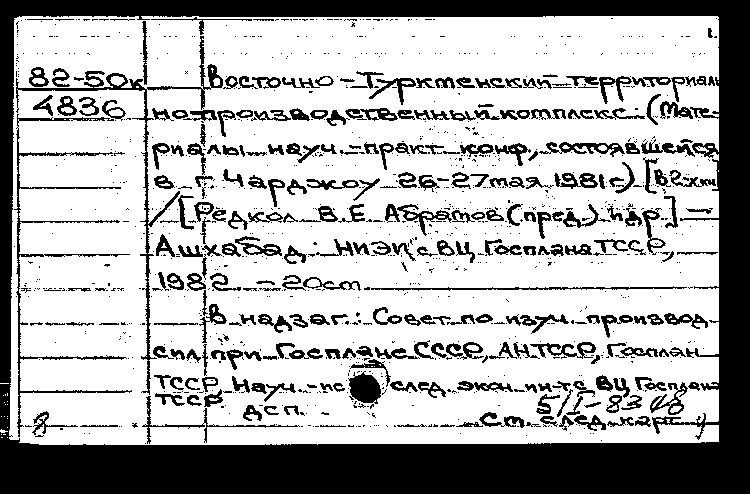 1.
82-50к Восточно-Туркменский территориаль
4836 но-производственный комплекс: (Мате-
риалы науч.-практ конф., состоявшейся
в г. Чарджоу 26-27 мая 1981г.) [В 2-х кн]
/ [Редкол В.Е Абратов (пред.) и др.] —
Ашхабад: НИЭИ с ВЦ Госплана ТССР,
1982 - 20см
В надзаг.: Совет по изуч. производ.
сил при Госплане СССР, АН ТССР, Госплан
ТССР Науч.-исслед. экон. ин-т с ВЦ Госплана
ТССР. ДСП.
5/I-83
См. след. карт
8.